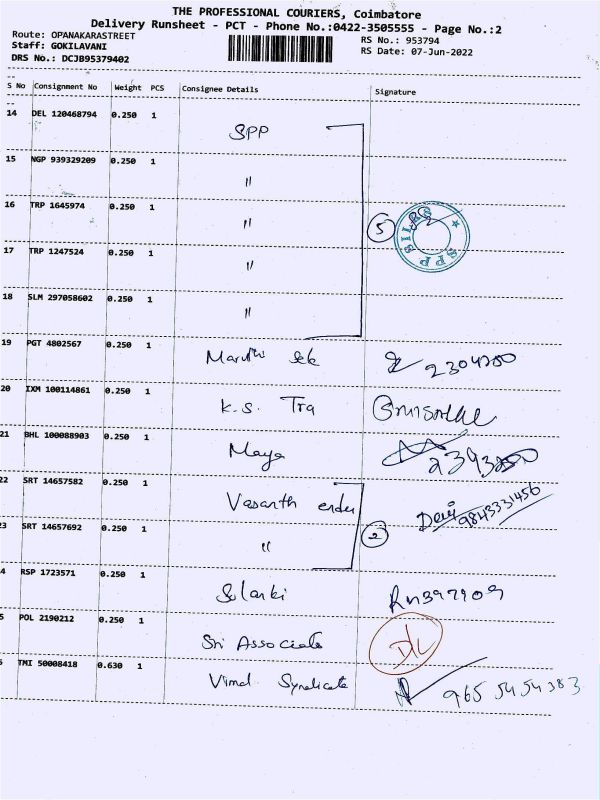 THE PROFESSIONAL COURIERS, Coimbatore
Delivery Runsheet - PCT - Phone No.:0422-3505555 - Page No.:2
Route: OPANAKARASTREET RS No.: 953794
Staff: GOKILAVANI RS Date: 07-Jun-2022
DRS No.: DCJB95379402
S No Consignment No Weight PCS Consignee Details Signature
14 DEL 120468794 0.250 1 SPP
15 NGP 939329209 0.250 1 "
16 TRP 1645974 0.250 1 " 5 SPP SILKS
17 TRP 1247524 0.250 1 "
18 SLM 297058602 0.250 1 "
19 PGT 4802567 0.250 1 Maruthi
20 IXM 100114861 0.250 1 K.S. Tra
21 BHL 100088903 0.250 1 Maya
22 SRT 14657582 0.250 1 Vasanth Devi 9843331456
23 SRT 14657692 0.250 1 " 2
4 RSP 1723571 0.250 1 Solanki
5 POL 2190212 0.250 1 Sri Associate
TMI 50008418 0.630 1 Vimal Syndicate 965 5454383